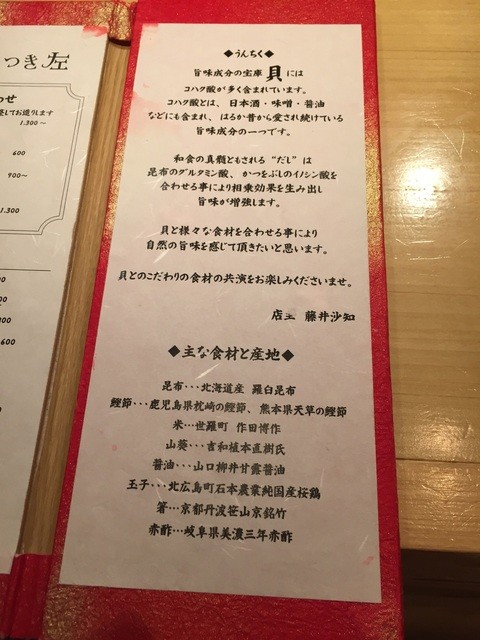 つき左
わせ
してお造りします
1.300～
600
900～
1.300
600
◆うんちく◆
旨味成分の宝庫 貝には
コハク酸が多く含まれています。
コハク酸とは、日本酒・味噌・醤油
などにも含まれ、はるか昔から愛され続けている
旨味成分の一つです。
和食の真髄ともされる“だし”は
昆布のグルタミン酸、かつをぶしのイノシン酸を
合わせる事により相乗効果を生み出し
旨味が増強します。
貝と様々な食材を合わせる事により
自然の旨味を感じて頂きたいと思います。
貝とのこだわりの食材の共演をお楽しみくださいませ。
店主 藤井沙知
◆主な食材と産地◆
昆布・・・北海道産 羅臼昆布
鰹節・・・鹿児島県枕崎の鰹節、熊本県天草の鰹節
米・・・世羅町 作田博作
山葵・・・吉和植本直樹氏
醤油・・・山口柳井甘露醤油
玉子・・・北広島町石本農業純国産桜鶏
箸・・・京都丹波笹山京銘竹
赤酢・・・岐阜県美濃三年赤酢